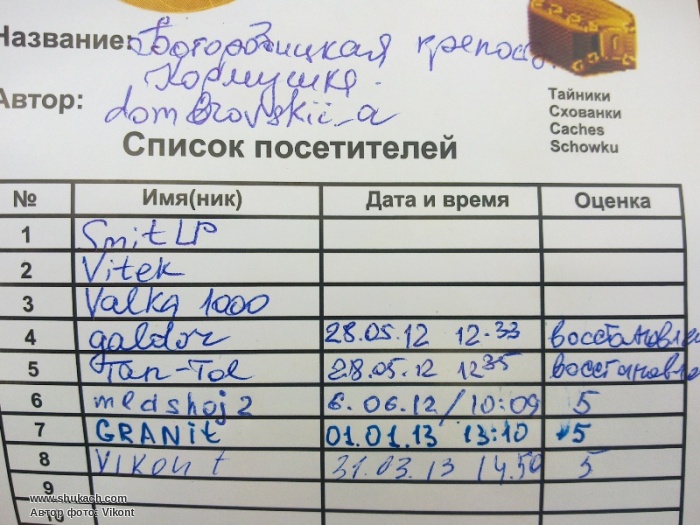 Название: Богородицкая крепость
Кормушка.
Автор: dombrovskii_a
Тайники
Схованки
Caches
Schowku
Список посетителей
№ Имя(ник) Дата и время Оценка
1 Smit LP
2 Vitek
3 Valka 1000
4 galdor 28.05.12 12-33 восстановлен
5 Tan-Tol 28.05.12 12 35 восстановле
6 medshoj2 6.06.12/10:09 5
7 GRANit 01.01.13 13:10 5
8 VIKont 31.03.13 14.50 5
9
10
www.shukach.com
Автор фото: Vikont